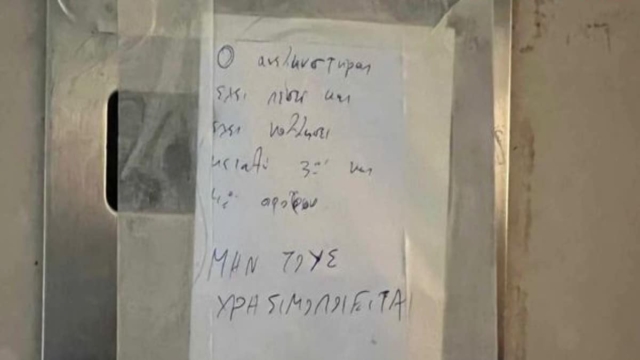 Ο ανελκυστηρας
εχει πέσει και
εχει κολλησει
μεταξύ 3ου και
4ου οροφου
ΜΗΝ ΤΟΥΣ
ΧΡΑΣΙΜΟΠΟΙΕΙΤΑΙ